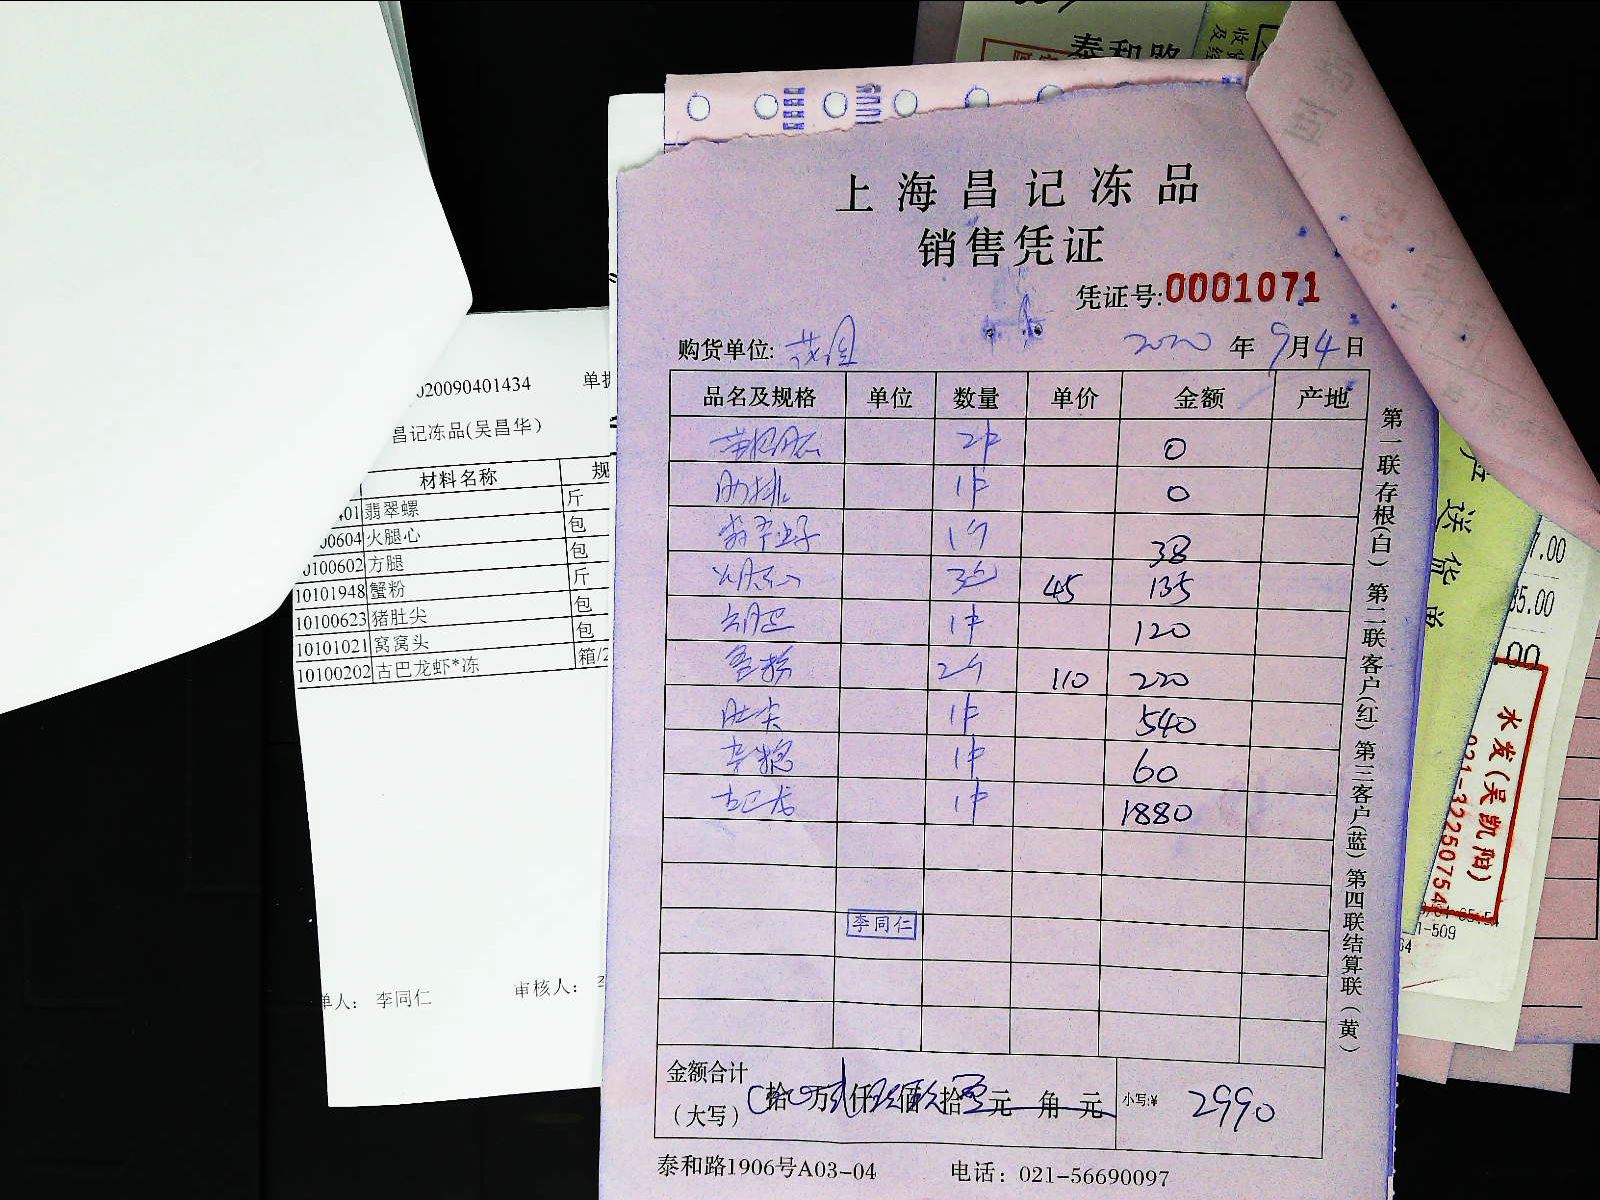 泰和路
上海昌记冻品
销售凭证
凭证号:0001071
购货单位:
2020 年 9月4日
品名及规格 单位 数量 单价 金额 产地
2件 0
肋排 1件 0
1个 38
3包 45 135
1件 120
2个 110 220
肚尖 1件 540
1件 60
古巴龙 1件 1880
李同仁
金额合计
(大写) 拾 万 仟 佰 拾 元 角 元 小写:¥ 2990
泰和路1906号A03-04 电话: 021-56690097
第一联存根(白) 第二联客户(红) 第三客户(蓝) 第四联结算联(黄)
020090401434 单据
昌记冻品(吴昌华)
材料名称 规
401 翡翠螺 斤
00604 火腿心 包
0100602 方腿 包
10101948 蟹粉 斤
10100623 猪肚尖 包
10101021 窝窝头 包
10100202 古巴龙虾*冻 箱/2
单人: 李同仁 审核人:
产送货单
7.00
35.00
00
水发(吴凯阳)
021-32250754
1-509
64